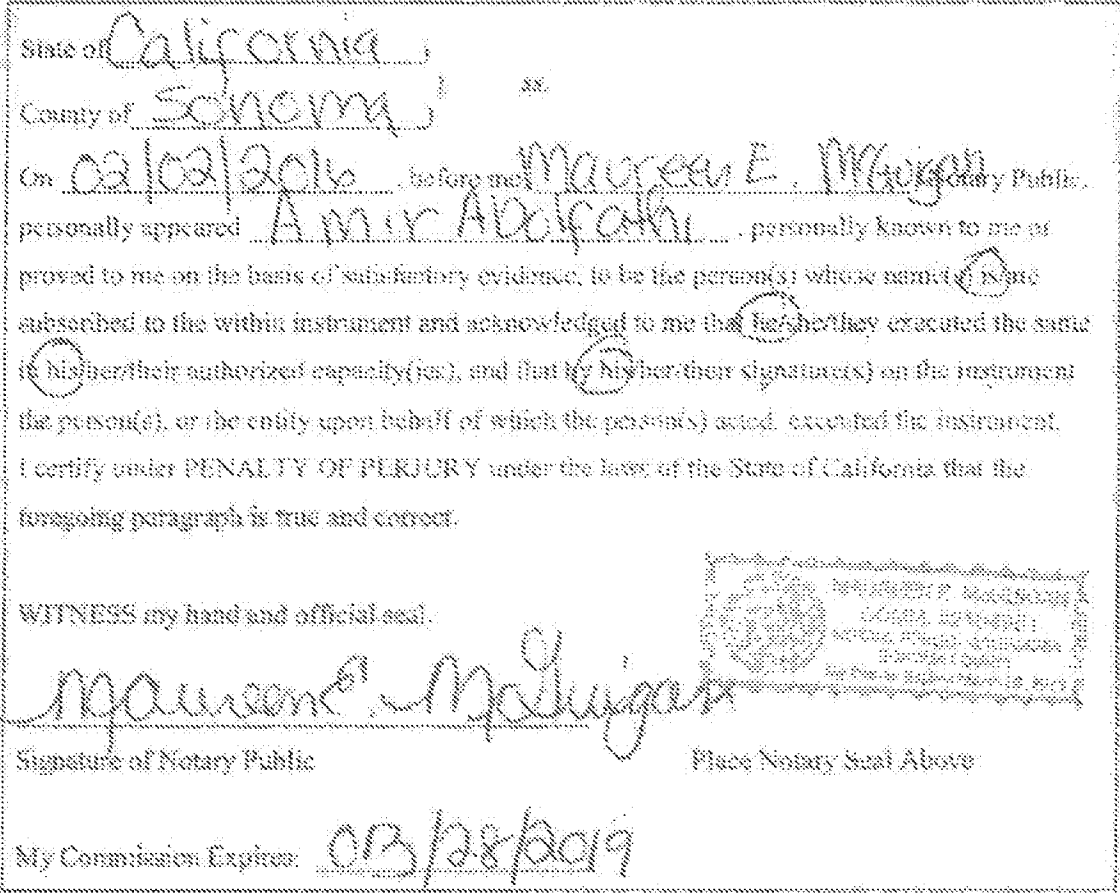 State of California )
) ss.
County of Sonoma )
On 02/02/2016, before me Maureen E. McGuigan Notary Public,
personally appeared Amir Abolfathi, personally known to me or
proved to me on the basis of satisfactory evidence, to be the person(s) whose name(s) is/are
subscribed to the within instrument and acknowledged to me that he/she/they executed the same
in his/her/their authorized capacity(ies), and that by his/her/their signature(s) on the instrument
the person(s), or the entity upon behalf of which the person(s) acted, executed the instrument.
I certify under PENALTY OF PERJURY under the laws of the State of California that the
foregoing paragraph is true and correct.
WITNESS my hand and official seal.
Maureen E. McGuigan
Signature of Notary Public
Place Notary Seal Above
My Commission Expires: 03/28/2019